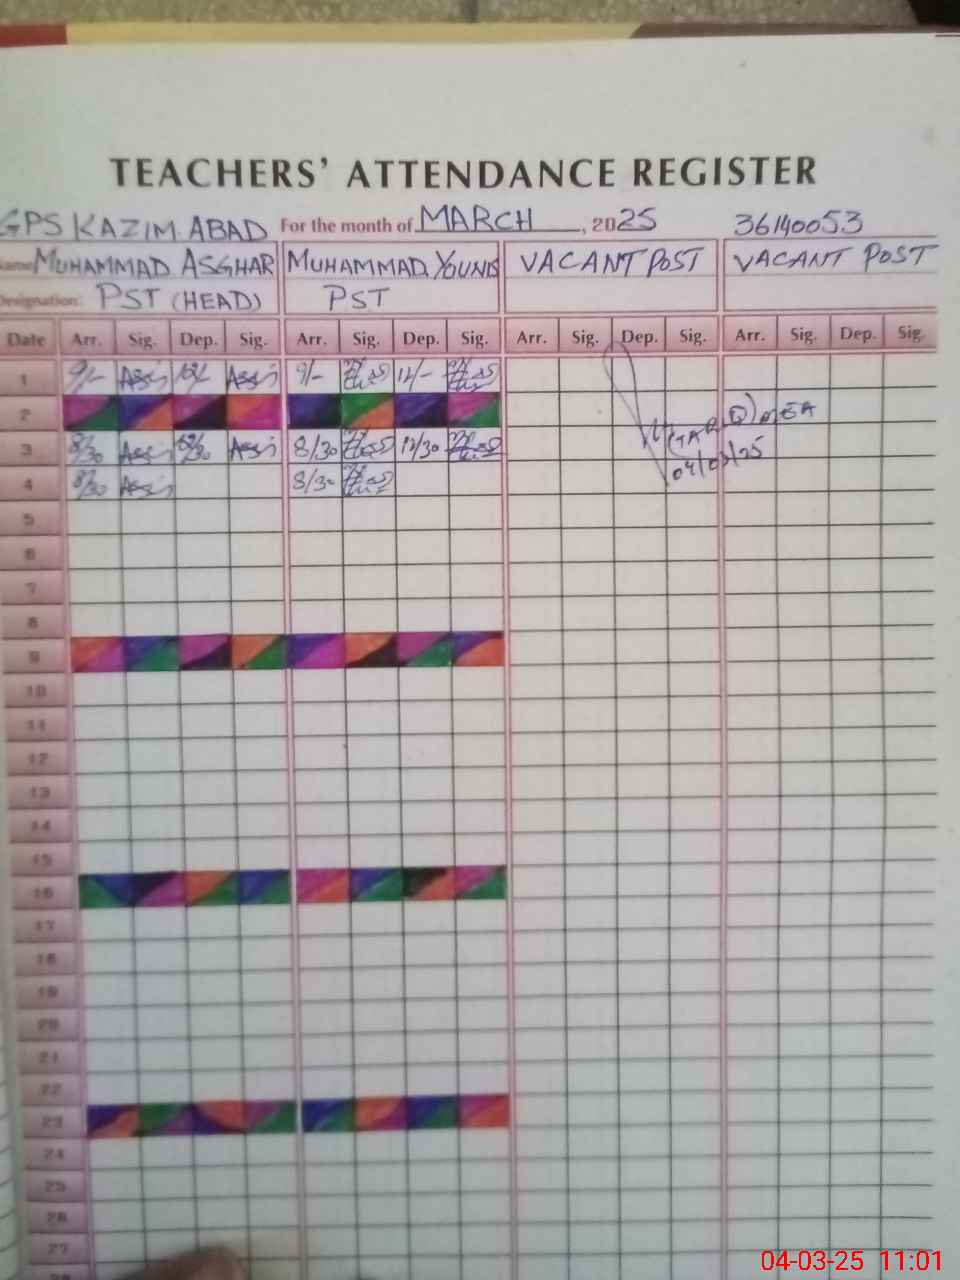 TEACHERS' ATTENDANCE REGISTER
GPS KAZIM ABAD For the month of MARCH, 2025 36140053
Name MUHAMMAD ASGHAR MUHAMMAD YOUNIS VACANT POST VACANT POST
Designation: PST (HEAD) PST
Date Arr. Sig. Dep. Sig. Arr. Sig. Dep. Sig. Arr. Sig. Dep. Sig. Arr. Sig. Dep. Sig.
1 9/- 12/- 9/- 12/-
2
3 8/30 12/30 8/30 12/30
4 8/30 8/30
04/03/25
5
6
7
8
9
10
11
12
13
14
15
16
17
18
19
20
21
22
23
24
25
26
27
28
04-03-25 11:01